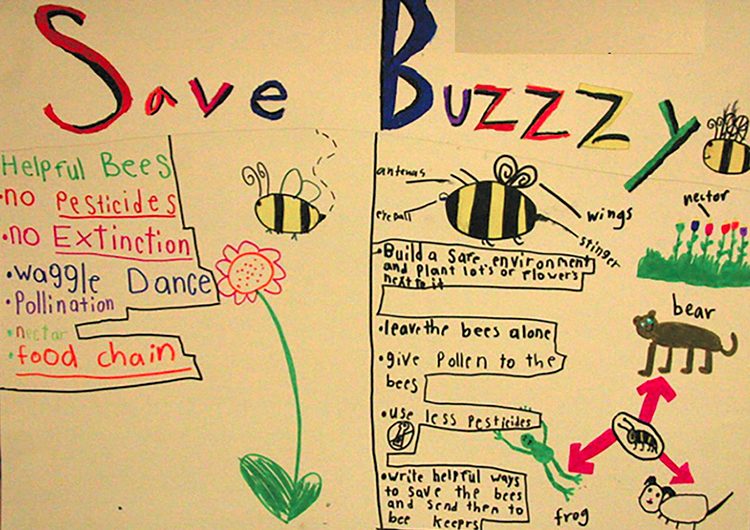 Save Buzzzy
Helpful Bees
•no Pesticides
•no Extinction
•waggle Dance
•Pollination
•nectar
•food chain
antenas
eyeball
wings
stinger
nector
•Build a Safe environment
and plant lot's of flower's
next to it
•leave the bees alone
•give Pollen to the
bees
•use less Pesticides
•write helpful ways
to save the bees
and send then to
bee keeprs
bear
frog